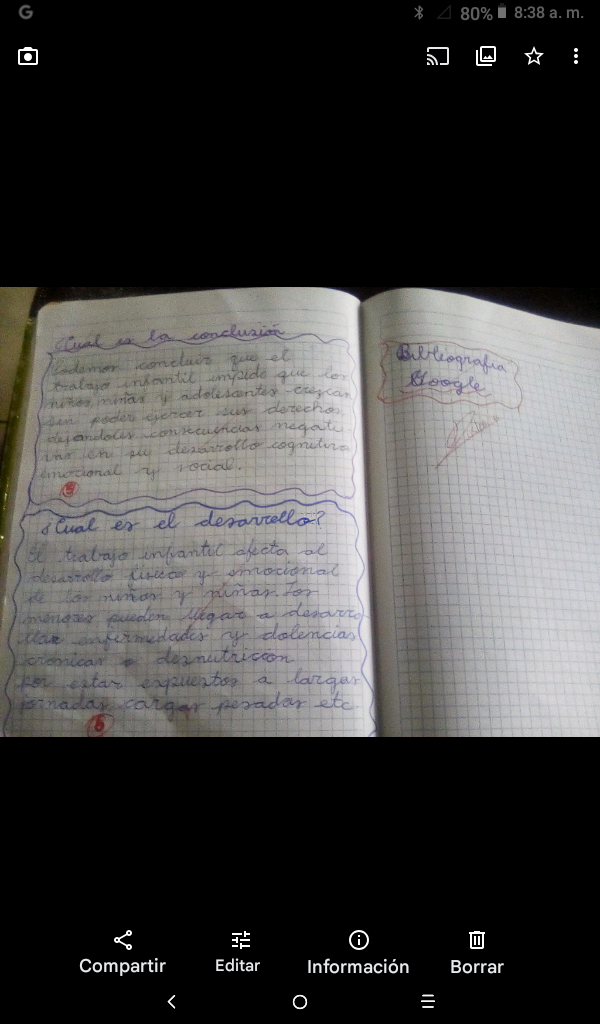 G
80% 8:38 a. m.
¿Cual es la conclusión
Podemos concluir que el
trabajo infantil impide que los
niños, niñas y adolesantes crezcan
sin poder ejercer sus derechos,
dejandoles consecuencias negati
vas en su desarrollo cognitivo
emocional y social.
5
¿Cual es el desarrollo?
El trabajo infantil afecta al
desarrollo físico y emocional
de los niños y niñas. Los
menores pueden llegar a desarro
llar enfermedades y dolencias
cronicas o desnutricion
por estar expuestos a largas
jornadas, cargas pesadas etc.
6
Bibliografia
Google
Compartir
Editar
Información
Borrar